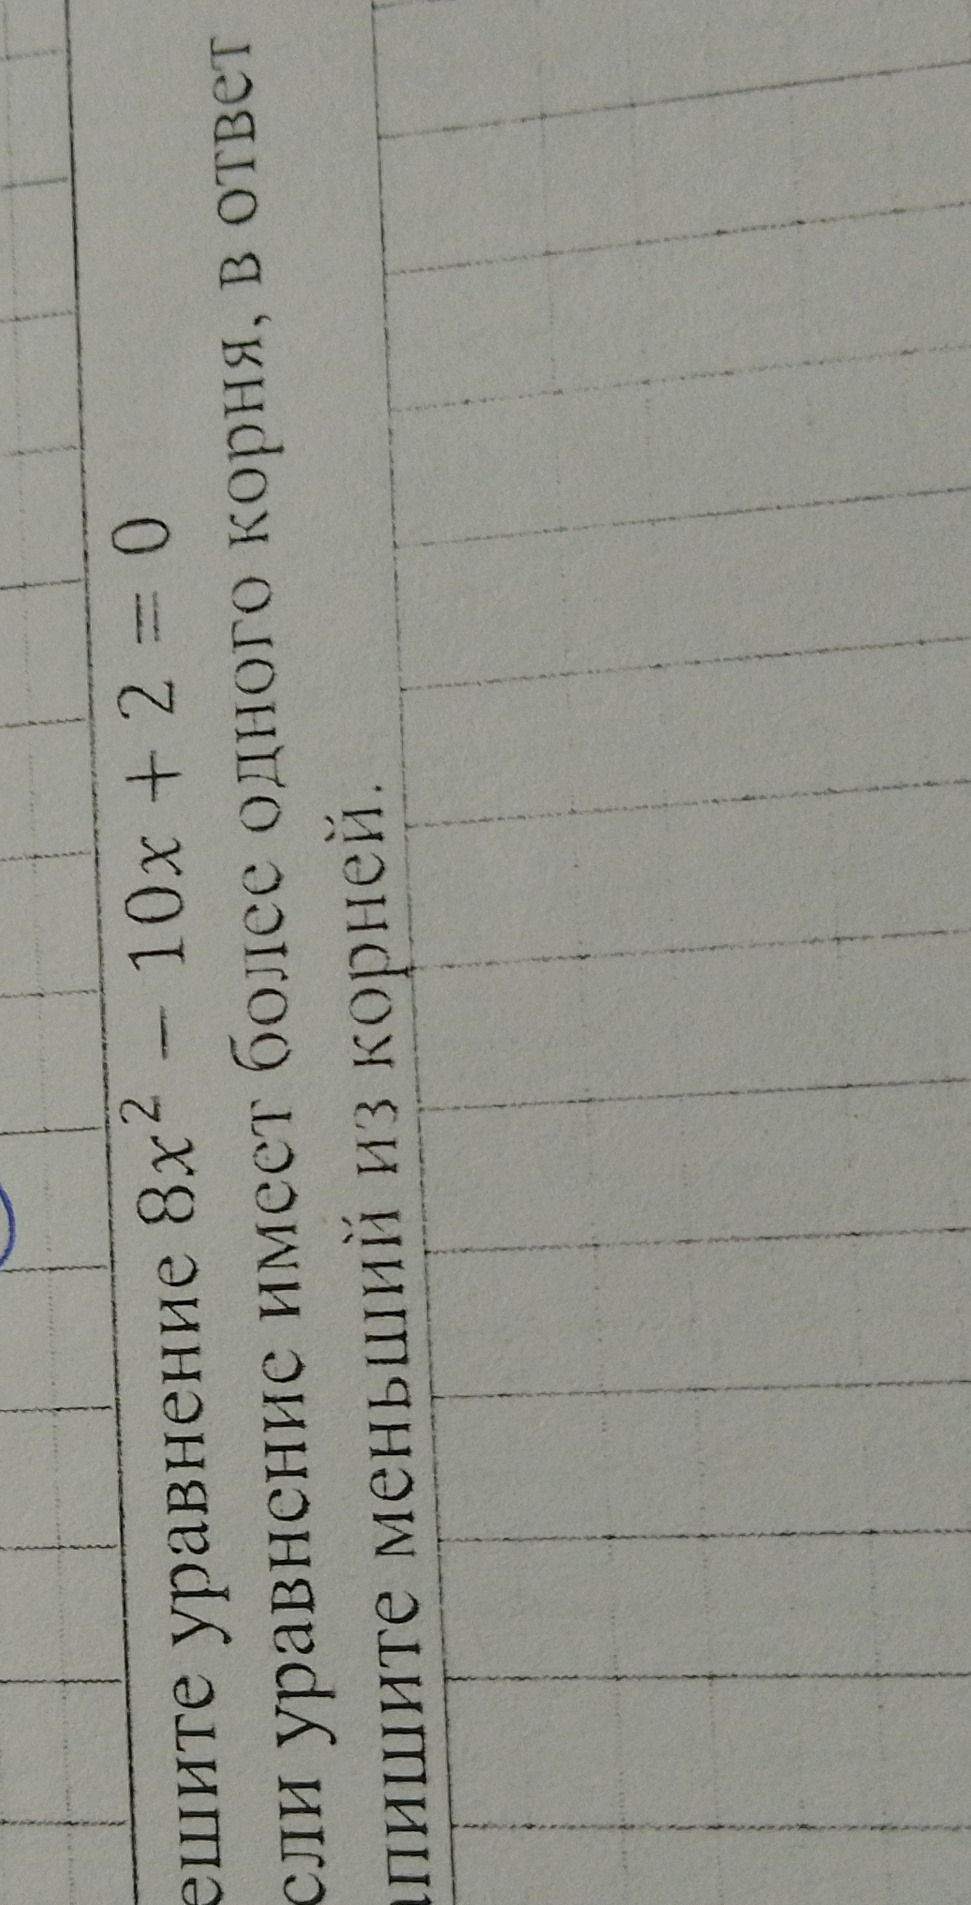 ешите уравнение 8x² − 10x + 2 = 0
сли уравнение имеет более одного корня, в ответ
апишите меньший из корней.